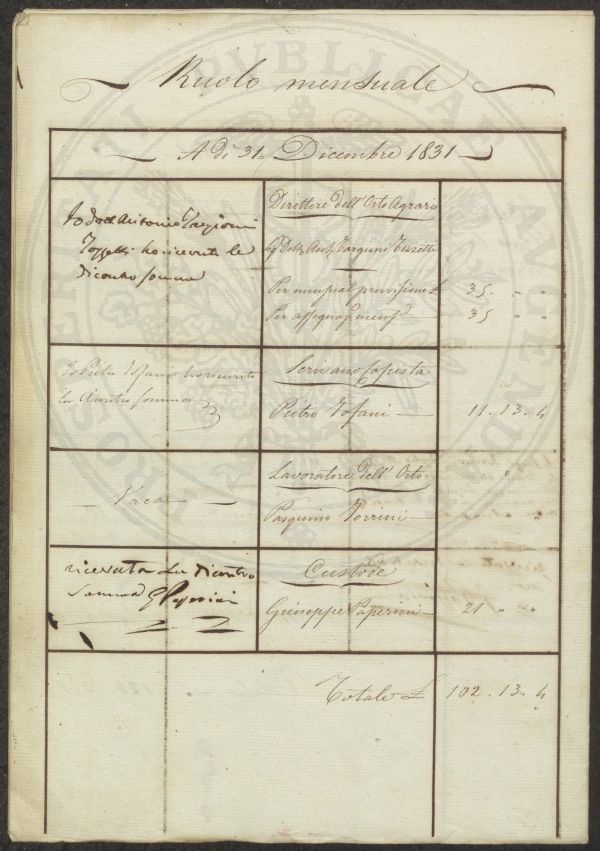 Ruolo mensuale
A dì 31 Dicembre 1831
Io Dott Antonio Targioni
Tozzetti ho ricevuto le
dicontro somme
Direttore dell'Orto Agrario
Sig Dott Ant Targioni Tozzetti
Per mensual provvisione £ 35 " "
Per assegnaz mens 35 " "
Io Pietro Tofani ho ricevuto
la dicontro somma
Scrivano Copista
Pietro Tofani 11. 13. 4
Vaca
Lavoratore dell'Orto
Pasquino Torrini " "
ricevuto la dicontro
somma G Paperini
Custode
Giuseppe Paperini 21 " "
Totale £ 102. 13. 4